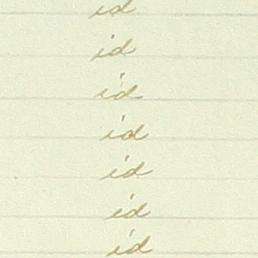 id
id
id
id
id
id
id